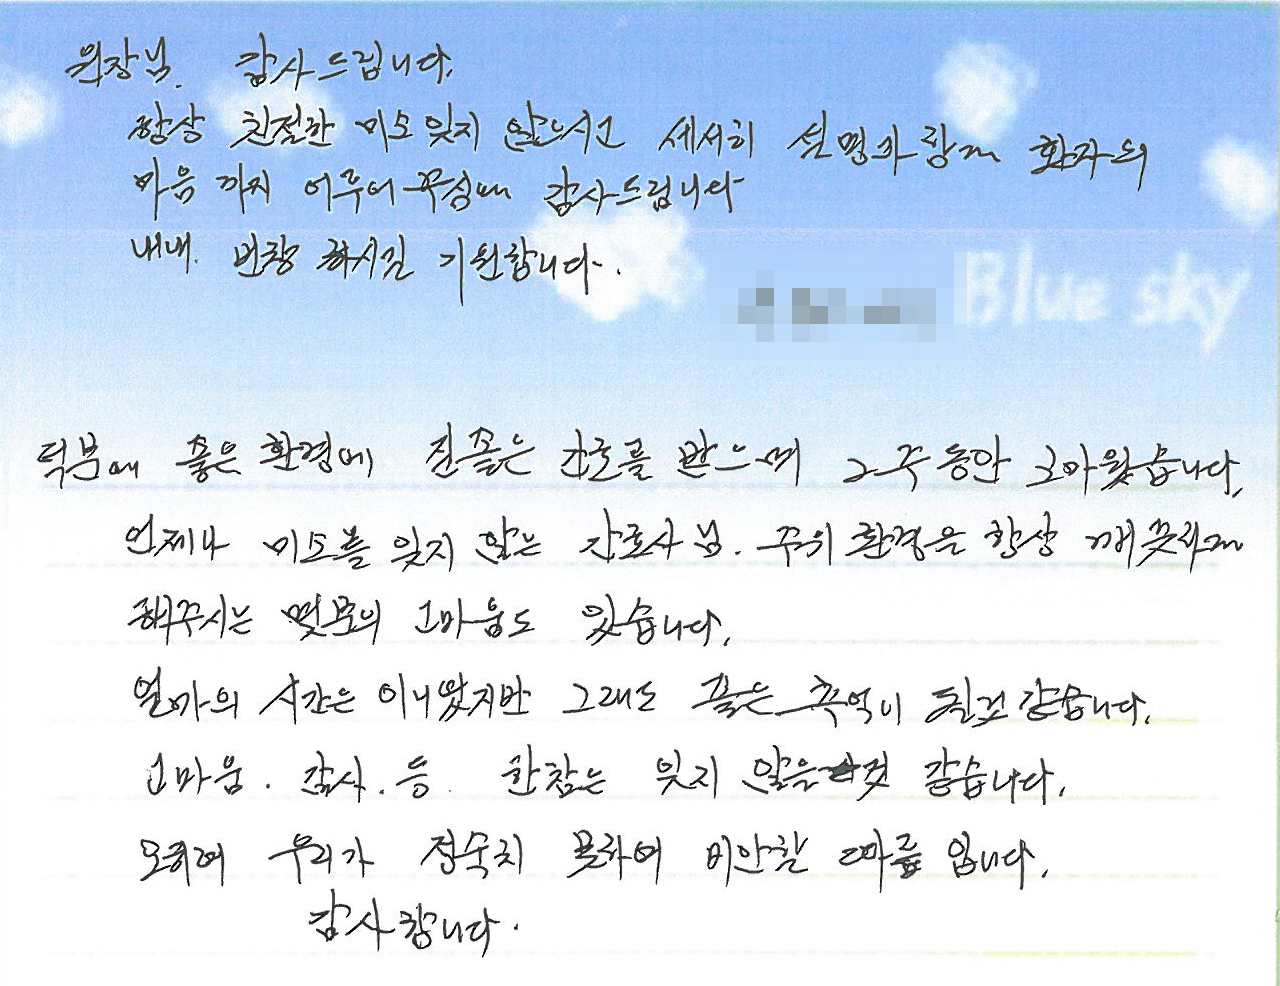 원장님. 감사드립니다.
항상 친절한 미소 잊지 않으시고 세세히 설명과 함께 환자의
마음까지 어루어주심에 감사드립니다
내내. 번창 하시길 기원합니다.
Blue sky
덕분에 좋은 환경에 질좋은 간호를 받으며 2주동안 고마웠습니다.
언제나 미소를 잊지 않는 간호사님. 주위 환경을 항상 깨끗하게
해주시는 몇분의 고마움도 있습니다.
얼마의 시간은 아니었지만 그래도 좋은 추억이 될것 같습니다.
고마움. 감사. 등. 한참은 잊지 않을 것 같습니다.
오히려 우리가 정숙치 못하여 미안할 따름입니다.
감사합니다.